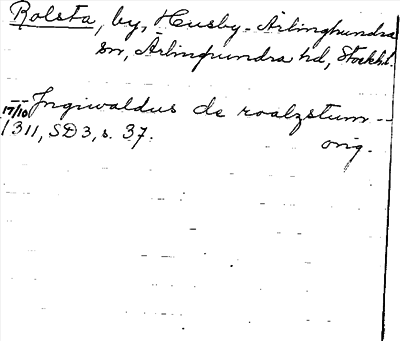 Rolsta, by, Husby-Ärlinghundra
sn, Ärlinghundra hd, Stockh.
-- Ingiwaldus de roalzstum --
17/10 1311, SD 3, s. 37. orig.